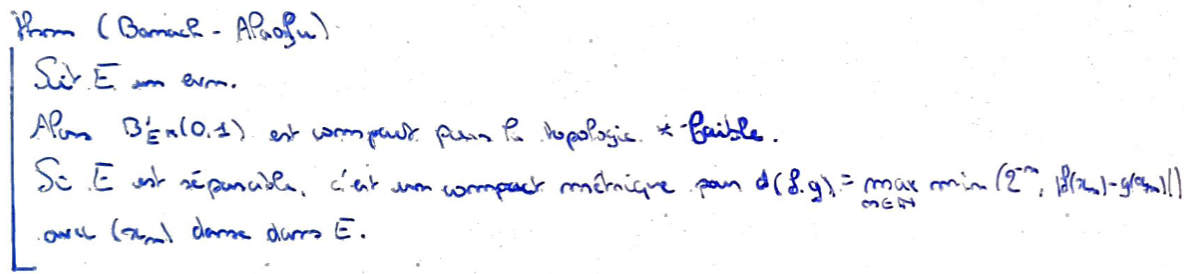 Thm (Banach - Alaoglu)
Soit E un evn.
Alors B'_{E*}(0,1) est compact pour la topologie *-faible.
Si E est séparable, c'est un compact métrique pour d(f,g) = max_{n∈ℕ} min(2^{-n}, |f(x_n)-g(x_n)|)
avec (x_n) dense dans E.